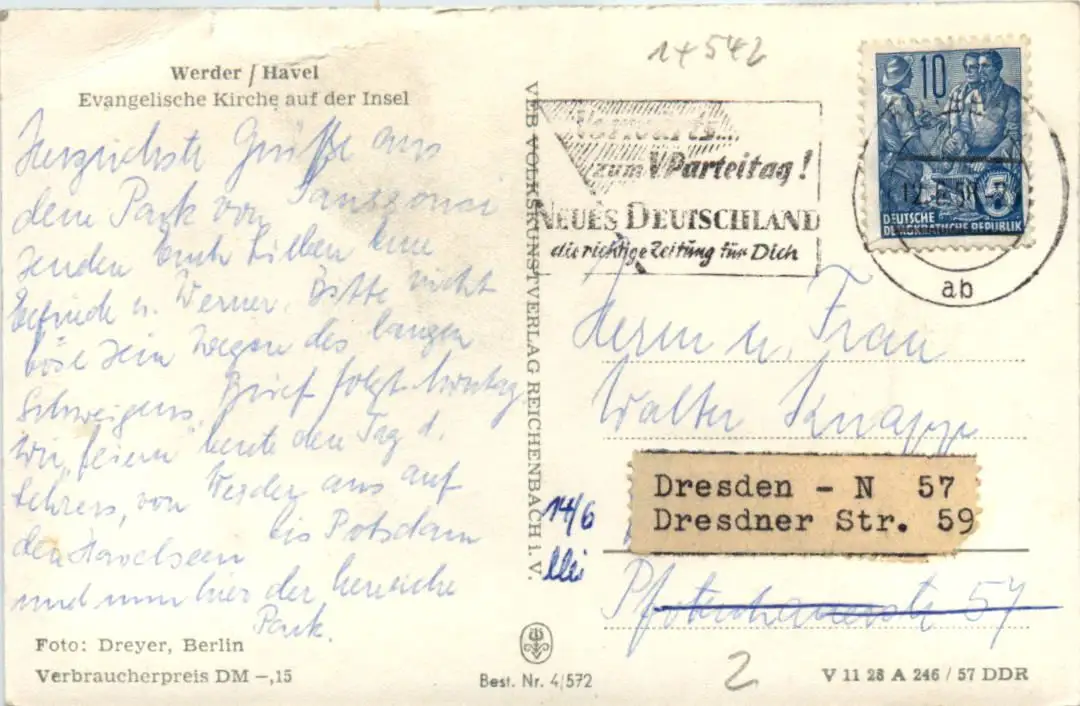 Werder / Havel
Evangelische Kirche auf der Insel
Herzlichste Grüße aus
dem Park von Sanssouci
senden Euch Lieben
u. Werner. Bitte nicht
böse sein wegen des langen
Schweigens, Brief folgt Montag
Wir feiern heute den Tag d.
Lehrers, von Werder aus auf
den Havelseen bis Potsdam
und nun hier der herrliche
Park.
Foto: Dreyer, Berlin
Verbraucherpreis DM –,15
VEB VOLKSKUNSTVERLAG REICHENBACH i. V.
Best. Nr. 4/572
14542
Vorwärts...
zum V. Parteitag!
NEUES DEUTSCHLAND
die richtige Zeitung für Dich
10
5
DEUTSCHE
DEMOKRATISCHE REPUBLIK
ab
Herrn u. Frau
Walter Knapp
Dresden - N 57
Dresdner Str. 59
14/6
Pfotenhauerstr 57
2
V 11 28 A 246 / 57 DDR